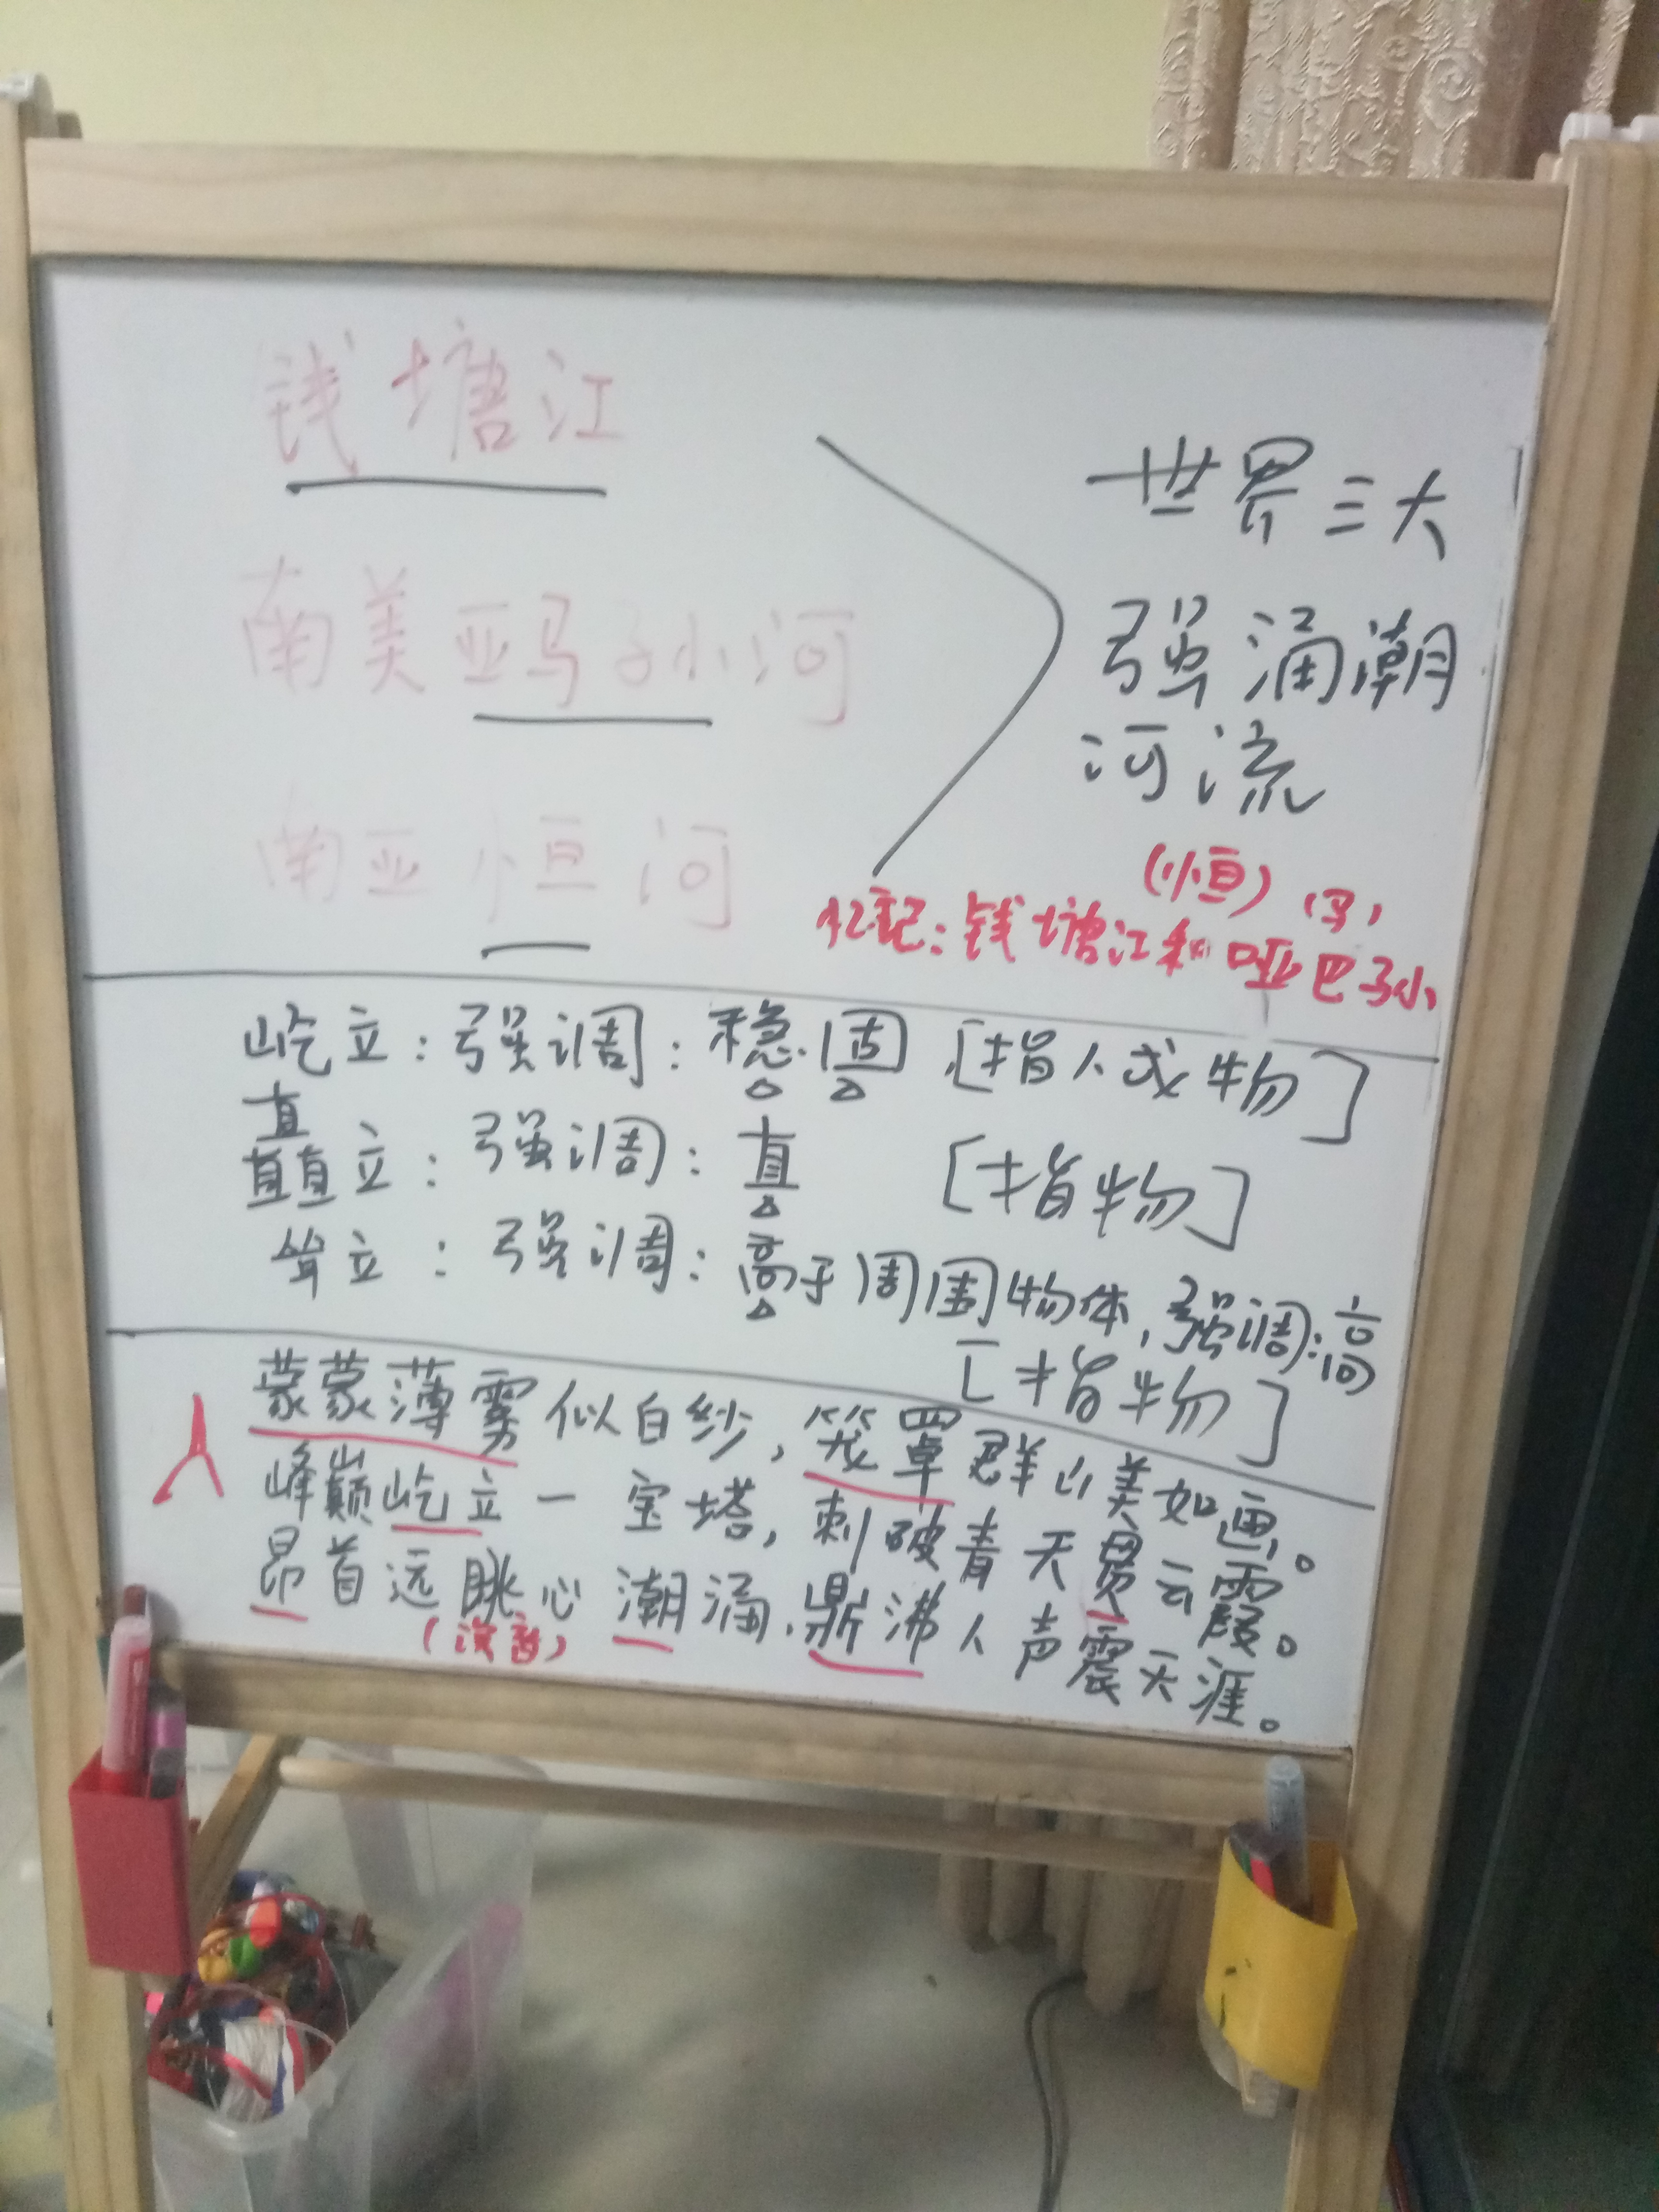 钱塘江
南美亚马孙河
南亚恒河
世界三大
强涌潮
河流
(恒) (马)
忆记：钱塘江和哑巴孙
屹立：强调：稳.固 [指人或物]
矗立：强调：直 [指物]
耸立：强调：高于周围物体，强调：高
[指物]
人
蒙蒙薄雾似白纱，笼罩群山美如画。
峰巅屹立一宝塔，刺破青天贯云霞。
昂首远眺心潮涌，鼎沸人声震天涯。
(读音)